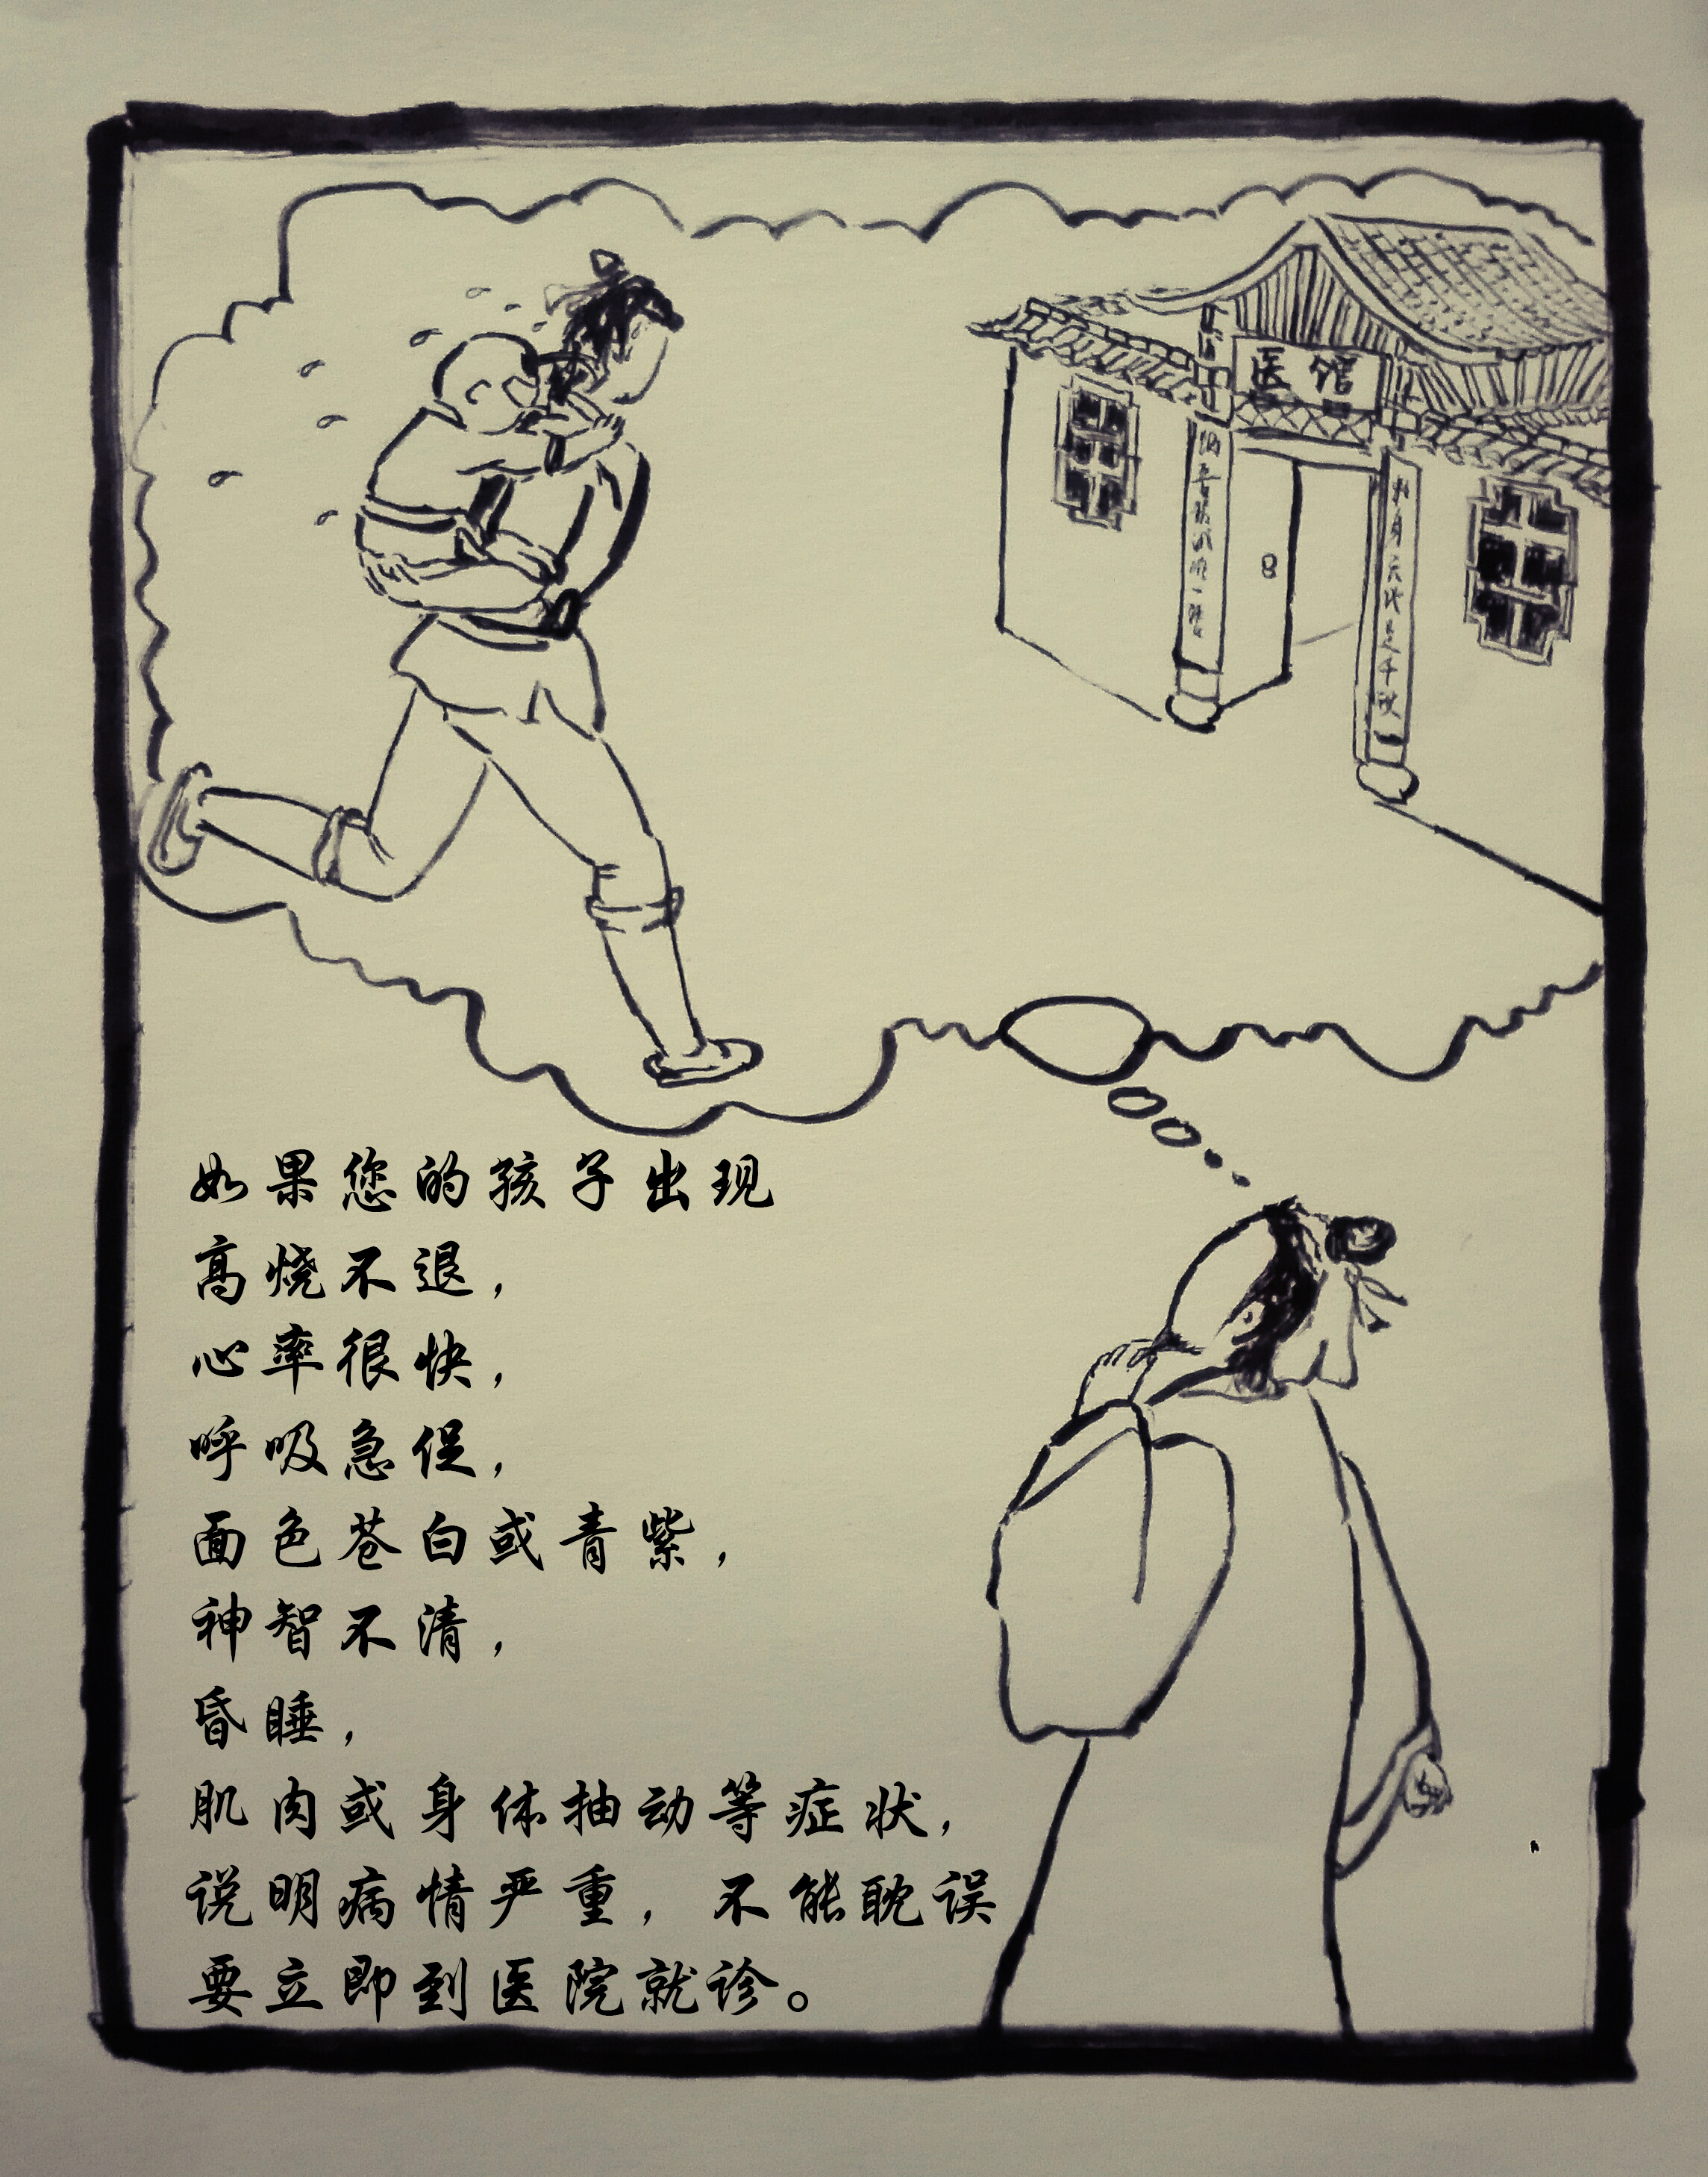 医馆
如果您的孩子出现
高烧不退，
心率很快，
呼吸急促，
面色苍白或青紫，
神智不清，
昏睡，
肌肉或身体抽动等症状，
说明病情严重，不能耽误
要立即到医院就诊。